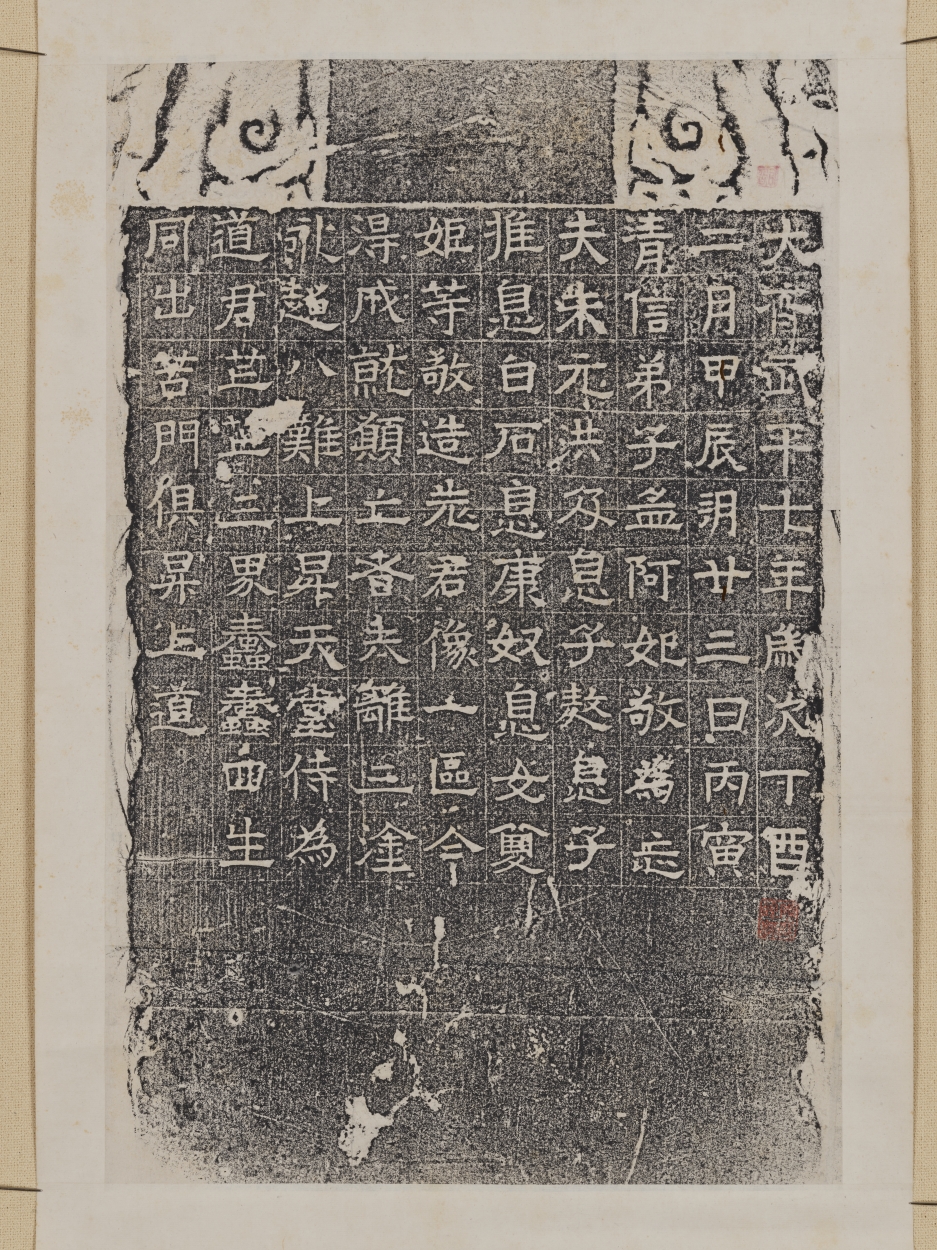 大齊武平七年歲次丁酉
二月甲辰朔廿三日丙寅
青信弟子孟阿妃敬為亡
夫朱元洪及息子敖息子
推息白石息康奴息女雙
姬等敬造老君像一區今
得成就願亡者去離三塗
永超八難上昇天堂侍為
道君芒芒三界蠢蠢四生
同出苦門俱昇上道